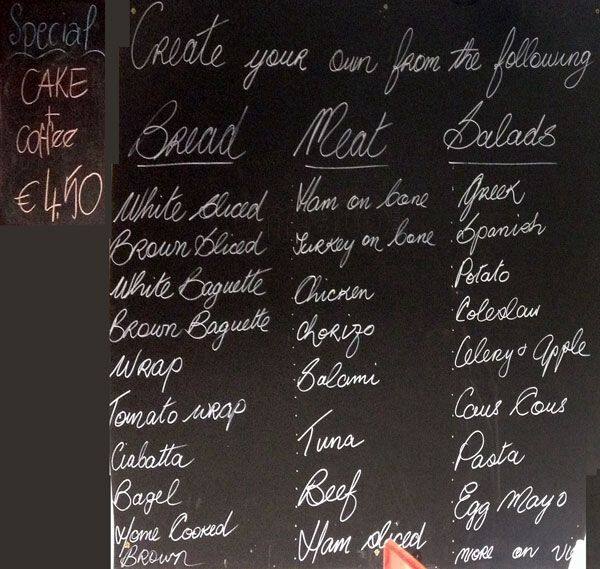 Special
CAKE
+
coffee
€ 4.50
Create your own from the following
Bread
White Sliced
Brown Sliced
White Baguette
Brown Baguette
Wrap
Tomato Wrap
Ciabatta
Bagel
Home Cooked
Brown
Meat
Ham on bone
Turkey on bone
Chicken
Chorizo
Salami
Tuna
Beef
Ham sliced
Salads
Greek
Spanish
Potato
Coleslaw
Celery + Apple
Cous Cous
Pasta
Egg Mayo
more on